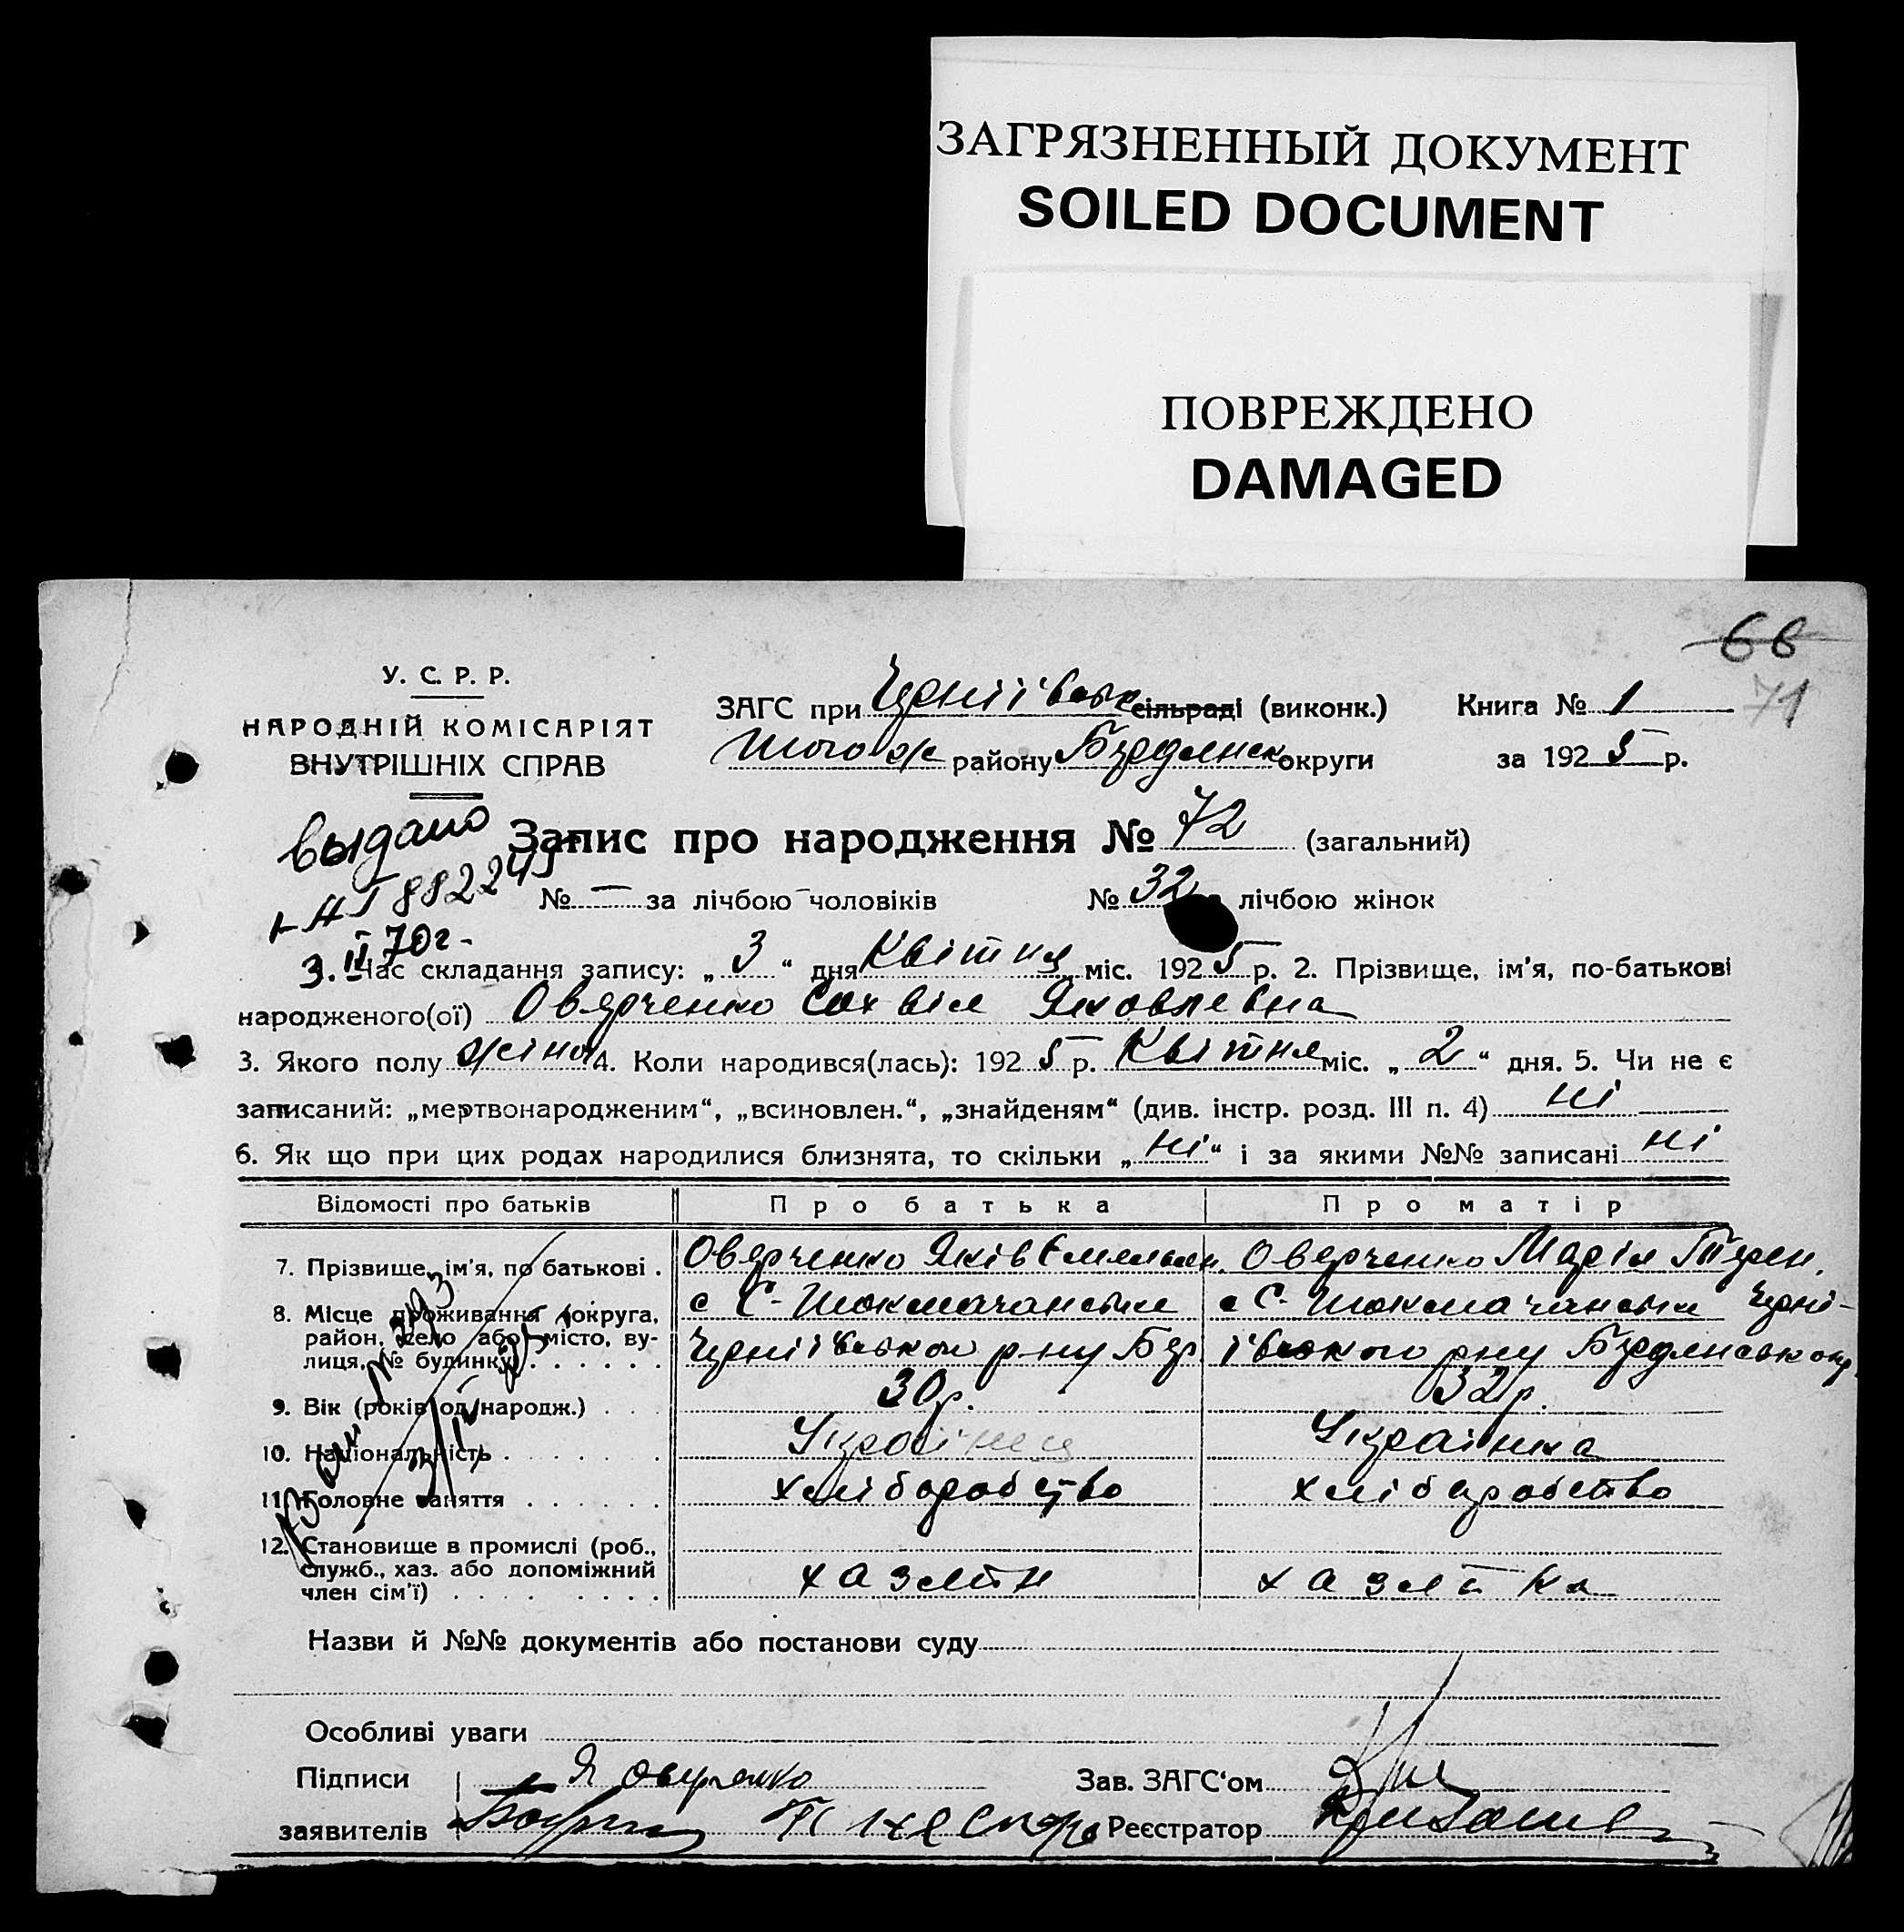 ЗАГРЯЗНЕННЫЙ ДОКУМЕНТ
SOILED DOCUMENT
ПОВРЕЖДЕНО
DAMAGED
66
71
У. С. Р. Р.
НАРОДНІЙ КОМІСАРІЯТ
ВНУТРІШНІХ СПРАВ
ЗАГС при Черніївськ сільраді (виконк.) Книга № 1
того ж району Бердянськ округи за 1925 р.
выдано
Запис про народження № 72 (загальний)
№ — за лічбою чоловіків № 32 лічбою жінок
70г.
Час складання запису: „3“ дня Квітня міс. 1925 р. 2. Прізвище, ім'я, по-батькові
народженого(ої) Оверченко Сохвія Яковлевна
3. Якого полу жіноч 4. Коли народився(лась): 1925 р. Квітня міс. „2“ дня. 5. Чи не є
записаний: „мертвонародженим“, „всиновлен.“, „знайденям“ (див. інстр. розд. III п. 4) ні
6. Як що при цих родах народилися близнята, то скільки „ні“ і за якими №№ записані ні
Відомості про батьків Про батька Про матір
7. Прізвище, ім'я, по батькові . Оверченко Яків Омельян. Оверченко Марія Терен.
8. Місце проживання (округа, район, село або місто, вулиця, № будинку) . . . . . .
с С-Токмачанськи Черніївського р-ну Бер.
с С-Токмачанськи Черні-
івського рну Бердянськ окр.
9. Вік (років од народж.) . . . 30 р. 32 р.
10. Національність . . . . . . . Українец Українка
11. Головне заняття . . . . . . хліборобство хліборобство
12. Становище в промислі (роб., служб., хаз. або допоміжний член сім'ї) . . . . . . . . хазяїн хазяйка
Назви й №№ документів або постанови суду
Особливі уваги
Підписи Я Оверченко Зав. ЗАГС'ом
заявителів Реєстратор